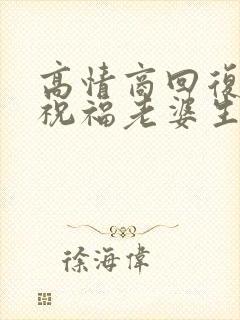 高情商回復
祝福老婆生
徐海偉